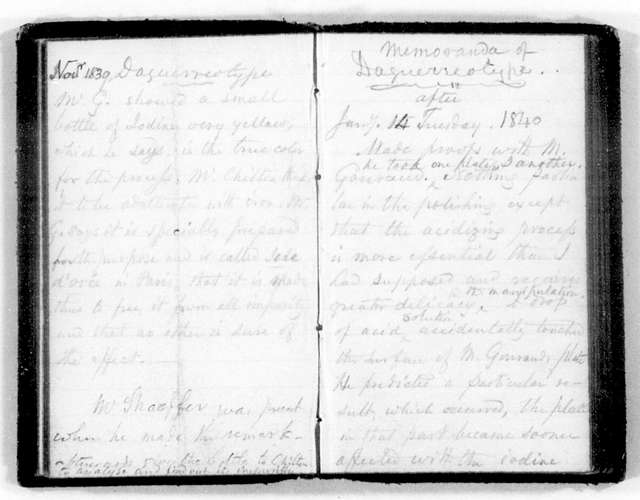 Novr 1839 Daguerreotype
Mr G. showed a small
bottle of Iodine very yellow,
which he says is the true color
for the process, Mr Chilton
to be adulterated with iron. Mr
G. says it is specially prepared
for the purpose and is called Iode
d'orée in Paris, that it is made
thus to free it from all impurities
and that no other is sure of
the effect.
Mr Shaeffer was present
when he made the remark
Afterwards to Chilton
to analyse and find out its impurities
Memoranda of
Daguerreotype.
after
Jany. 14 Tuesday. 1840
Made proofs with M.
he took one plate, I another.
Gouraud. Nothing particu-
lar in the polishing except
that the acidizing process
is more essential than I
had supposed and requires
in the manipulation.
greater delicacy. A drop
solution
of acid accidentally touched
the surface of M. Gouraud's plate
He predicted a particular re-
sult, which occurred, the plate
in that part became sooner
affected with the iodine